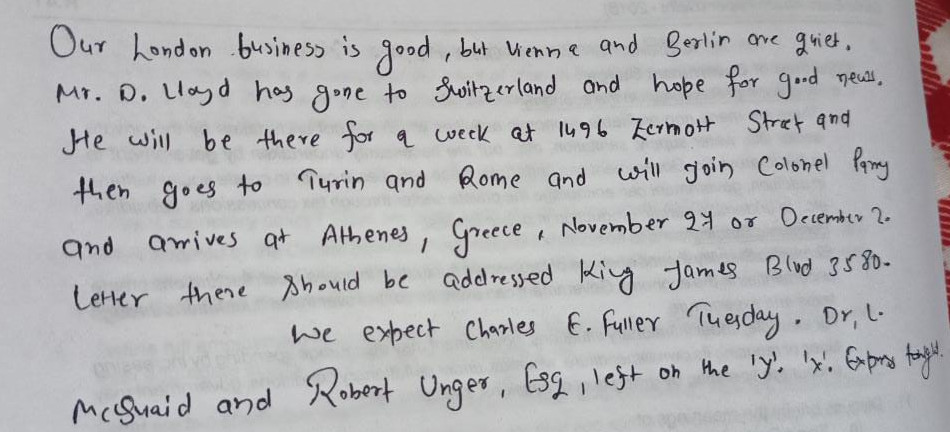 Our London business is good, but Vienna and Berlin are quiet.
Mr. D. Lloyd has gone to Switzerland and hope for good news.
He will be there for a week at 1496 Zermott Street and
then goes to Turin and Rome and will join Colonel Parry
and arrives at Athenes, Greece, November 27 or December 2.
Letter there Should be addressed King James Blvd 3580.
We expect Charles E. Fuller Tuesday. Dr, L.
McQuaid and Robert Unger, Esq, left on the 'y'. 'x'. Express